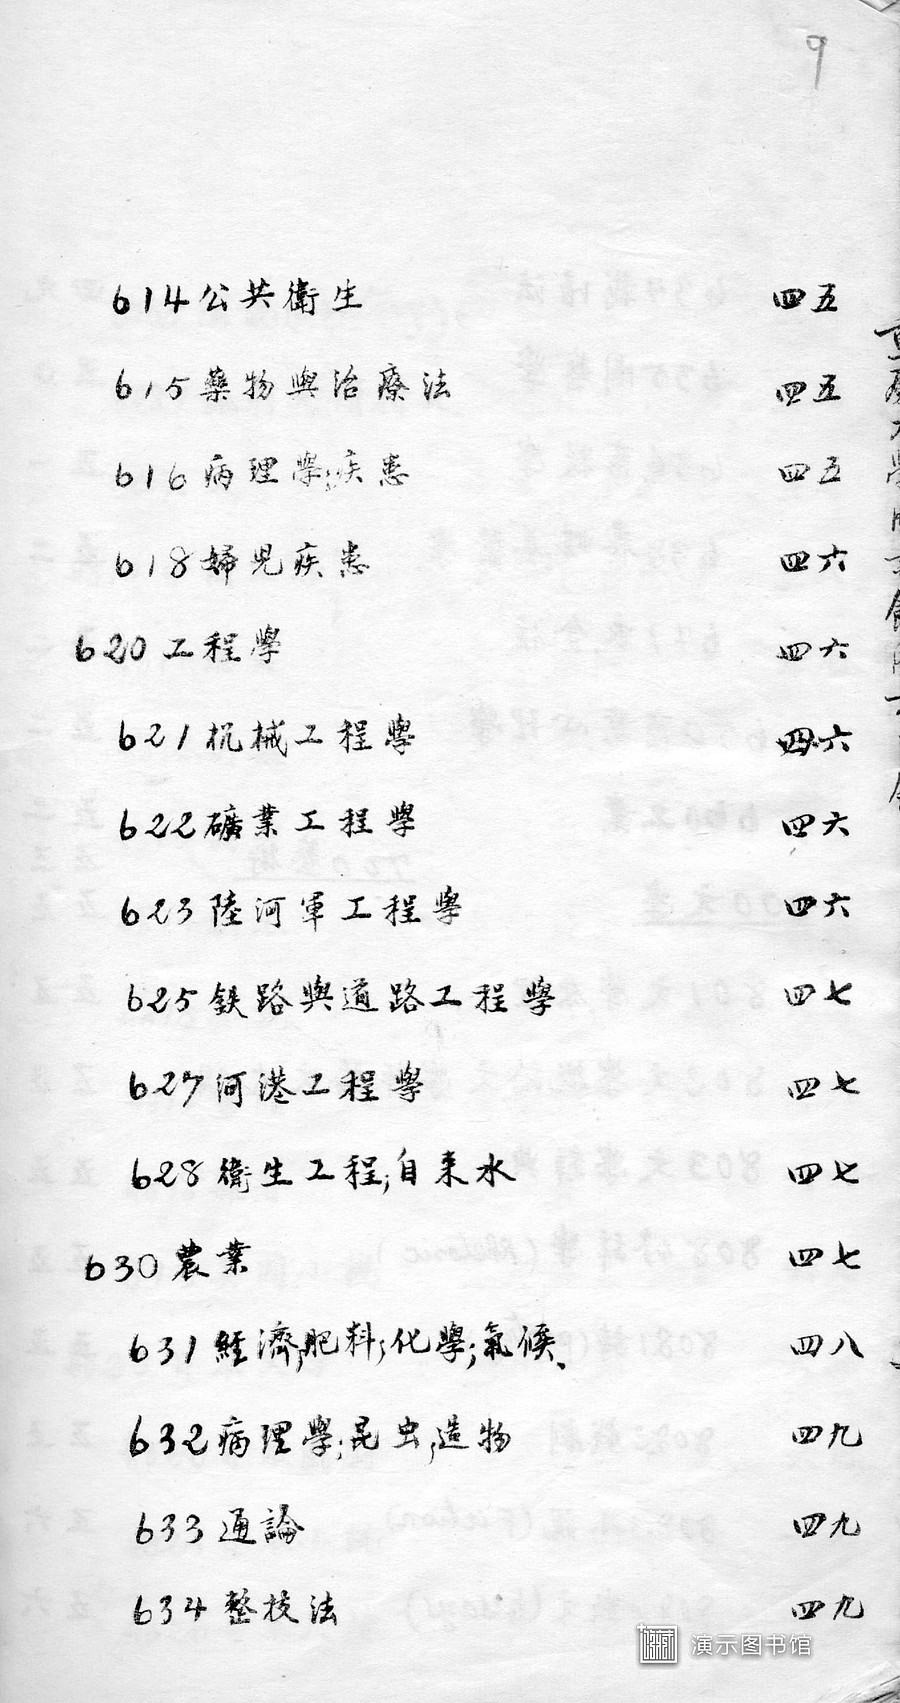 9
614 公共衛生 四五
615 藥物與治療法 四五
616 病理學;疾患 四五
618 婦兒疾患 四六
620 工程學 四六
621 机械工程學 四六
622 礦業工程學 四六
623 陸河軍工程學 四六
625 鉄路與道路工程學 四七
627 河港工程學 四七
628 衛生工程;自来水 四七
630 農業 四七
631 經濟;肥料;化學;氣候、 四八
632 病理學;昆虫;造物 四九
633 通論 四九
634 整技法 四九
演示图书馆